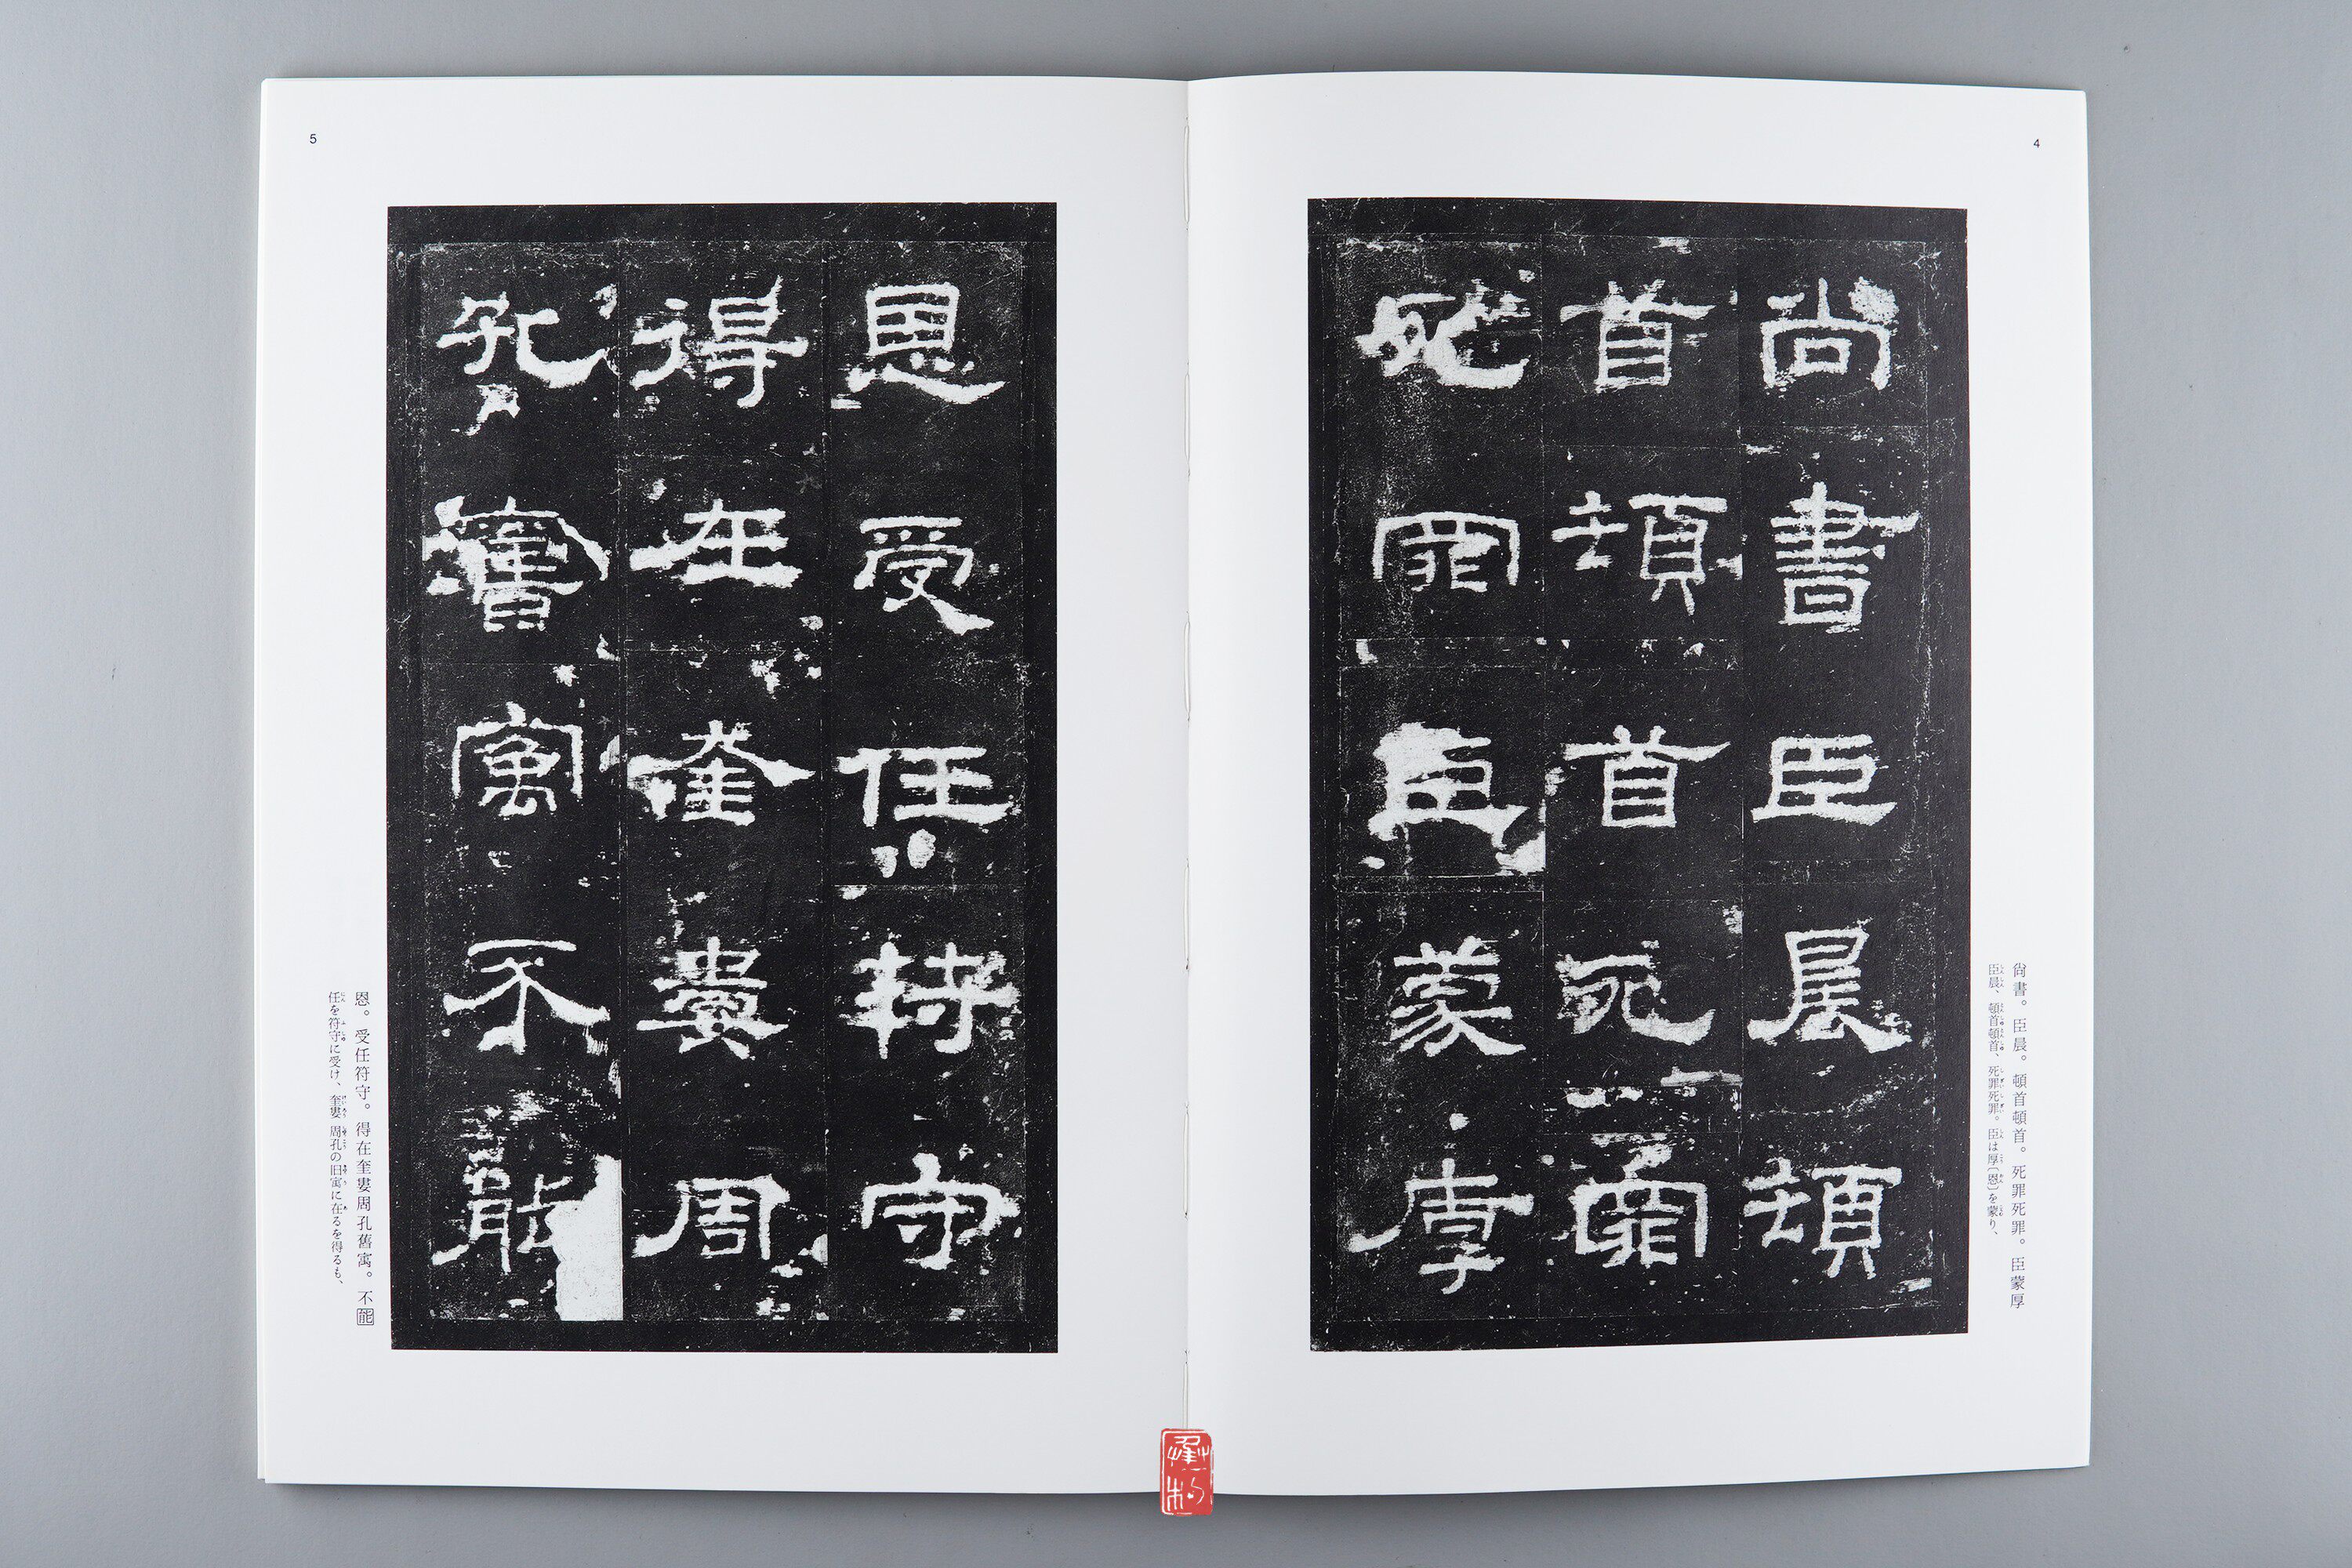 4
尚書臣晨頓
首頓首死罪
死罪臣蒙厚
尙書。臣晨。頓首頓首。死罪死罪。臣蒙厚
臣晨、頓首頓首、死罪死罪。臣は厚〔恩〕を蒙り、
5
恩受任符守
得在奎婁周
孔舊寓不能
恩。受任符守。得在奎婁周孔舊寓。不能
任を符守に受け、奎婁周孔の旧寓に在るを得るも、